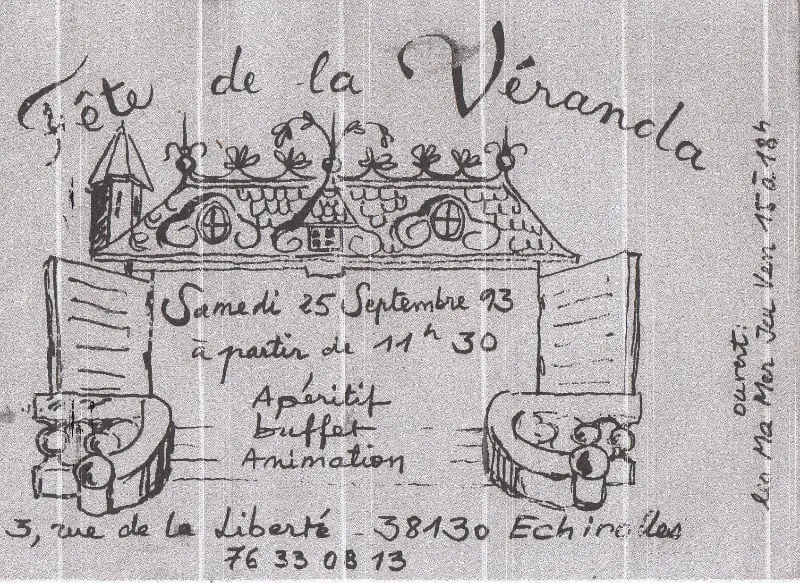 Fête de la Véranda
Samedi 25 Septembre 93
à partir de 11h 30
Apéritif
buffet
Animation
3, rue de la Liberté - 38130 Echirolles
76 33 08 13
ouvert:
Ma Mer Jeu Ven 15 à 18h